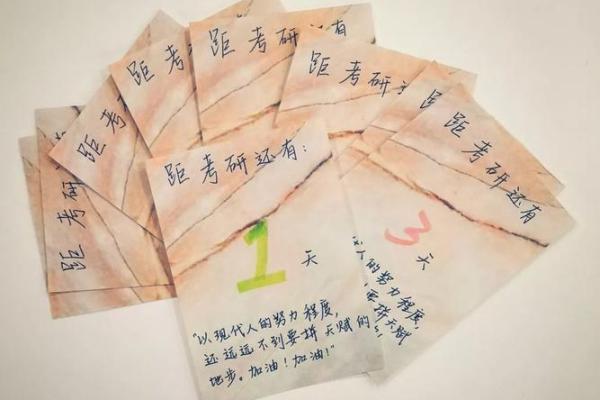 距考研
距考研
距考
距考研还有
距考研
距
距考研还有
3
天
人的努力程度,
天赋
距考研还有:
1
天
"以现代人的努力程度,
还远远不到要拼天赋的
地步。加油!加油!"